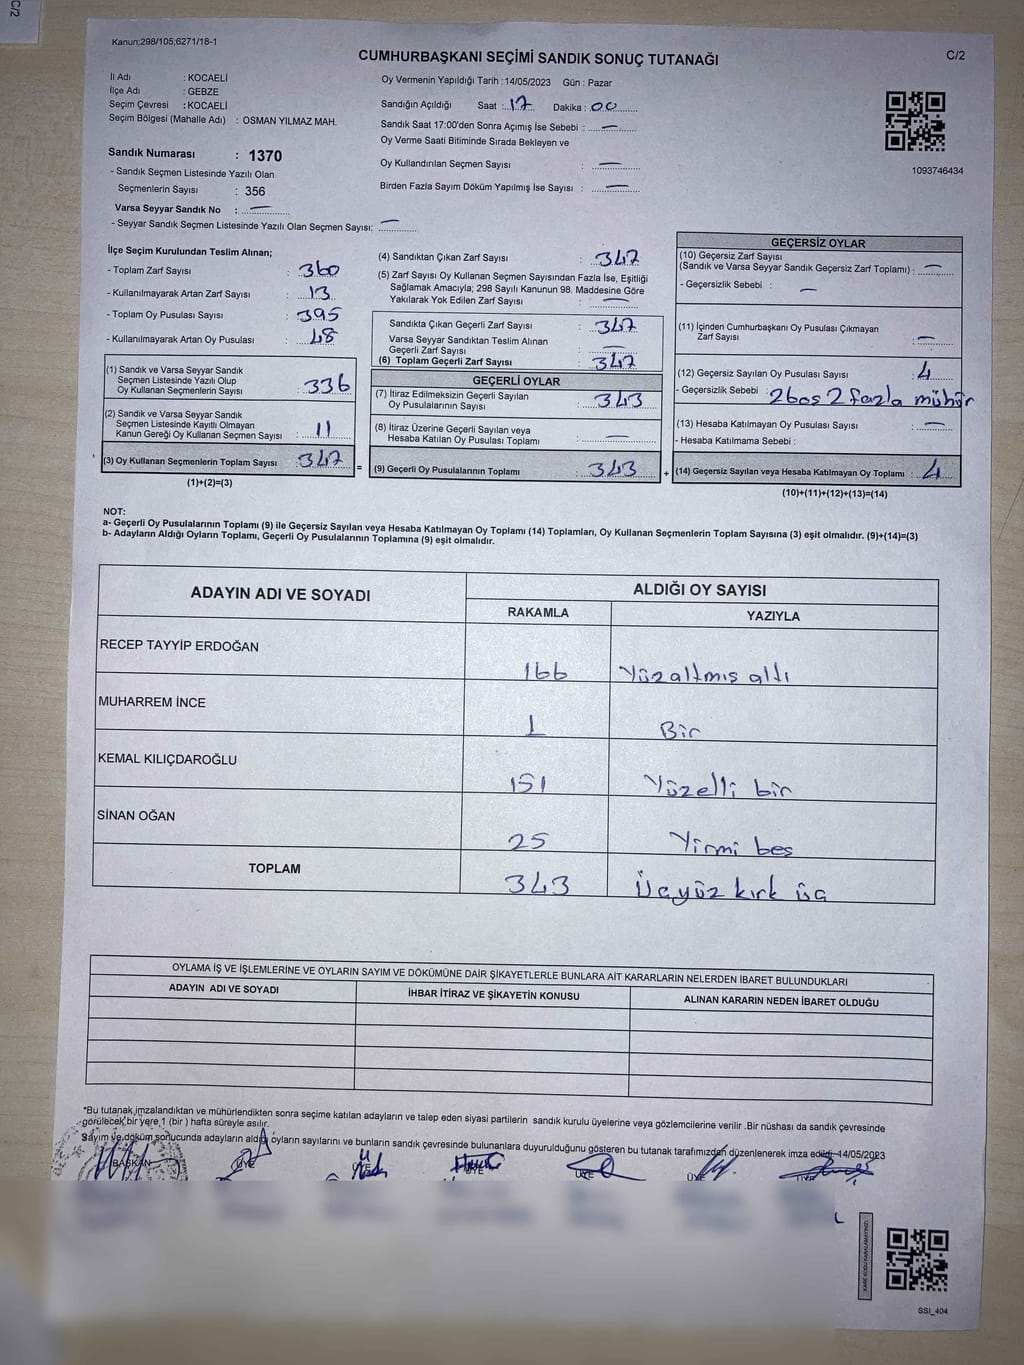 C/2
Kanun;298/105;6271/18-1
CUMHURBAŞKANI SEÇİMİ SANDIK SONUÇ TUTANAĞI
C/2
İl Adı : KOCAELİ
İlçe Adı : GEBZE
Seçim Çevresi : KOCAELİ
Seçim Bölgesi (Mahalle Adı) : OSMAN YILMAZ MAH.
Sandık Numarası : 1370
- Sandık Seçmen Listesinde Yazılı Olan
Seçmenlerin Sayısı : 356
Varsa Seyyar Sandık No : —
- Seyyar Sandık Seçmen Listesinde Yazılı Olan Seçmen Sayısı: —
Oy Vermenin Yapıldığı Tarih : 14/05/2023 Gün : Pazar
Sandığın Açıldığı Saat : 17 Dakika : 00
Sandık Saat 17:00'den Sonra Açımış İse Sebebi : —
Oy Verme Saati Bitiminde Sırada Bekleyen ve
Oy Kullandırılan Seçmen Sayısı : —
Birden Fazla Sayım Döküm Yapılmış İse Sayısı : —
1093746434
İlçe Seçim Kurulundan Teslim Alınan;
- Toplam Zarf Sayısı : 360
- Kullanılmayarak Artan Zarf Sayısı : 13
- Toplam Oy Pusulası Sayısı : 395
- Kullanılmayarak Artan Oy Pusulası : 48
(1) Sandık ve Varsa Seyyar Sandık
Seçmen Listesinde Yazılı Olup
Oy Kullanan Seçmenlerin Sayısı : 336
(2) Sandık ve Varsa Seyyar Sandık
Seçmen Listesinde Kayıtlı Olmayan
Kanun Gereği Oy Kullanan Seçmen Sayısı : 11
(3) Oy Kullanan Seçmenlerin Toplam Sayısı : 347
(1)+(2)=(3)
=
(4) Sandıktan Çıkan Zarf Sayısı : 347
(5) Zarf Sayısı Oy Kullanan Seçmen Sayısından Fazla İse, Eşitliği
Sağlamak Amacıyla; 298 Sayılı Kanunun 98. Maddesine Göre
Yakılarak Yok Edilen Zarf Sayısı : —
Sandıkta Çıkan Geçerli Zarf Sayısı : 347
Varsa Seyyar Sandıktan Teslim Alınan
Geçerli Zarf Sayısı : —
(6) Toplam Geçerli Zarf Sayısı : 347
GEÇERLİ OYLAR
(7) İtiraz Edilmeksizin Geçerli Sayılan
Oy Pusulalarının Sayısı : 343
(8) İtiraz Üzerine Geçerli Sayılan veya
Hesaba Katılan Oy Pusulası Toplamı : —
(9) Geçerli Oy Pusulalarının Toplamı : 343
+
GEÇERSİZ OYLAR
(10) Geçersiz Zarf Sayısı
(Sandık ve Varsa Seyyar Sandık Geçersiz Zarf Toplamı) : —
- Geçersizlik Sebebi : —
(11) İçinden Cumhurbaşkanı Oy Pusulası Çıkmayan
Zarf Sayısı : —
(12) Geçersiz Sayılan Oy Pusulası Sayısı : 4
- Geçersizlik Sebebi : 2 boş 2 fazla mühür
(13) Hesaba Katılmayan Oy Pusulası Sayısı : —
- Hesaba Katılmama Sebebi :
(14) Geçersiz Sayılan veya Hesaba Katılmayan Oy Toplamı : 4
(10)+(11)+(12)+(13)=(14)
NOT:
a- Geçerli Oy Pusulalarının Toplamı (9) ile Geçersiz Sayılan veya Hesaba Katılmayan Oy Toplamı (14) Toplamları, Oy Kullanan Seçmenlerin Toplam Sayısına (3) eşit olmalıdır. (9)+(14)=(3)
b- Adayların Aldığı Oyların Toplamı, Geçerli Oy Pusulalarının Toplamına (9) eşit olmalıdır.
ADAYIN ADI VE SOYADI ALDIĞI OY SAYISI
RAKAMLA YAZIYLA
RECEP TAYYİP ERDOĞAN 166 Yüzaltmış altı
MUHARREM İNCE 1 Bir
KEMAL KILIÇDAROĞLU 151 Yüzelli bir
SİNAN OĞAN 25 Yirmi beş
TOPLAM 343 Üçyüz kırk üç
OYLAMA İŞ VE İŞLEMLERİNE VE OYLARIN SAYIM VE DÖKÜMÜNE DAİR ŞİKAYETLERLE BUNLARA AİT KARARLARIN NELERDEN İBARET BULUNDUKLARI
ADAYIN ADI VE SOYADI İHBAR İTİRAZ VE ŞİKAYETİN KONUSU ALINAN KARARIN NEDEN İBARET OLDUĞU
*Bu tutanak,imzalandıktan ve mühürlendikten sonra seçime katılan adayların ve talep eden siyasi partilerin sandık kurulu üyelerine veya gözlemcilerine verilir .Bir nüshası da sandık çevresinde
görülecek bir yere 1 (bir ) hafta süreyle asılır.
Sayım ve döküm sonucunda adayların aldığı oyların sayılarını ve bunların sandık çevresinde bulunanlara duyurulduğunu gösteren bu tutanak tarafımızdan düzenlenerek imza edildi. 14/05/2023
BAŞKAN ÜYE ÜYE ÜYE ÜYE ÜYE ÜYE
KARE KODU KARALAMAYINIZ.
SSI_404